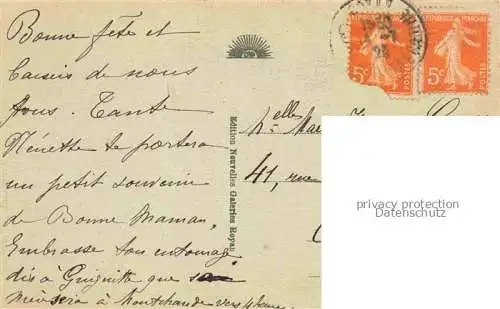 Bonne fête et
baisers de nous
tous. Tante
Ménette te portera
un petit souvenir
de Bonne Maman,
Embrasse ton entourage
dis à Guiguitte que
à Montchaude vers 4 heures
Edition Nouvelles Galeries Royan
elle
41, rue
REPUBLIQUE FRANCAISE
5c POSTES
5c POSTES
privacy protection
Datenschutz